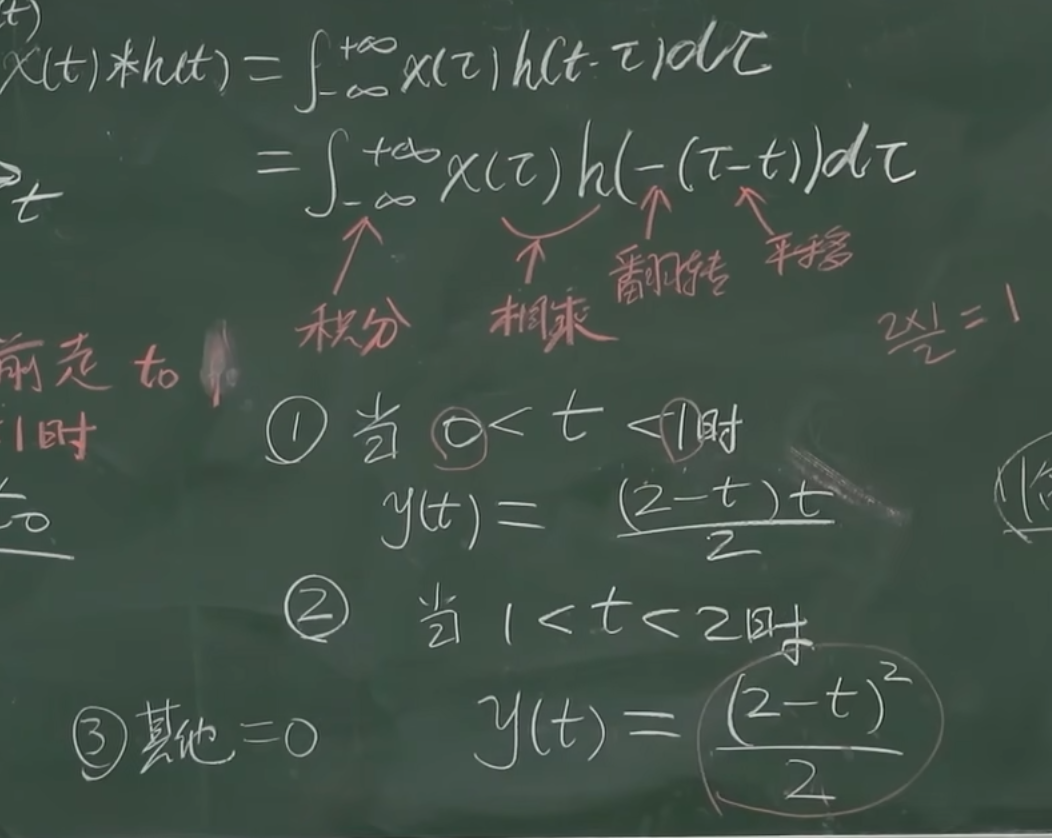 (t)
x(t)*h(t) = ∫_{-∞}^{+∞} x(τ)h(t-τ)dτ
= ∫_{-∞}^{+∞} x(τ)h(-(τ-t))dτ
t
积分 相乘 翻转 平移
2×1/2 = 1
前走 t₀
1时
① 当 0 < t < 1时
t₀
y(t) = (2-t)t/2
② 当 1 < t < 2时
③ 其他 = 0
y(t) = (2-t)²/2